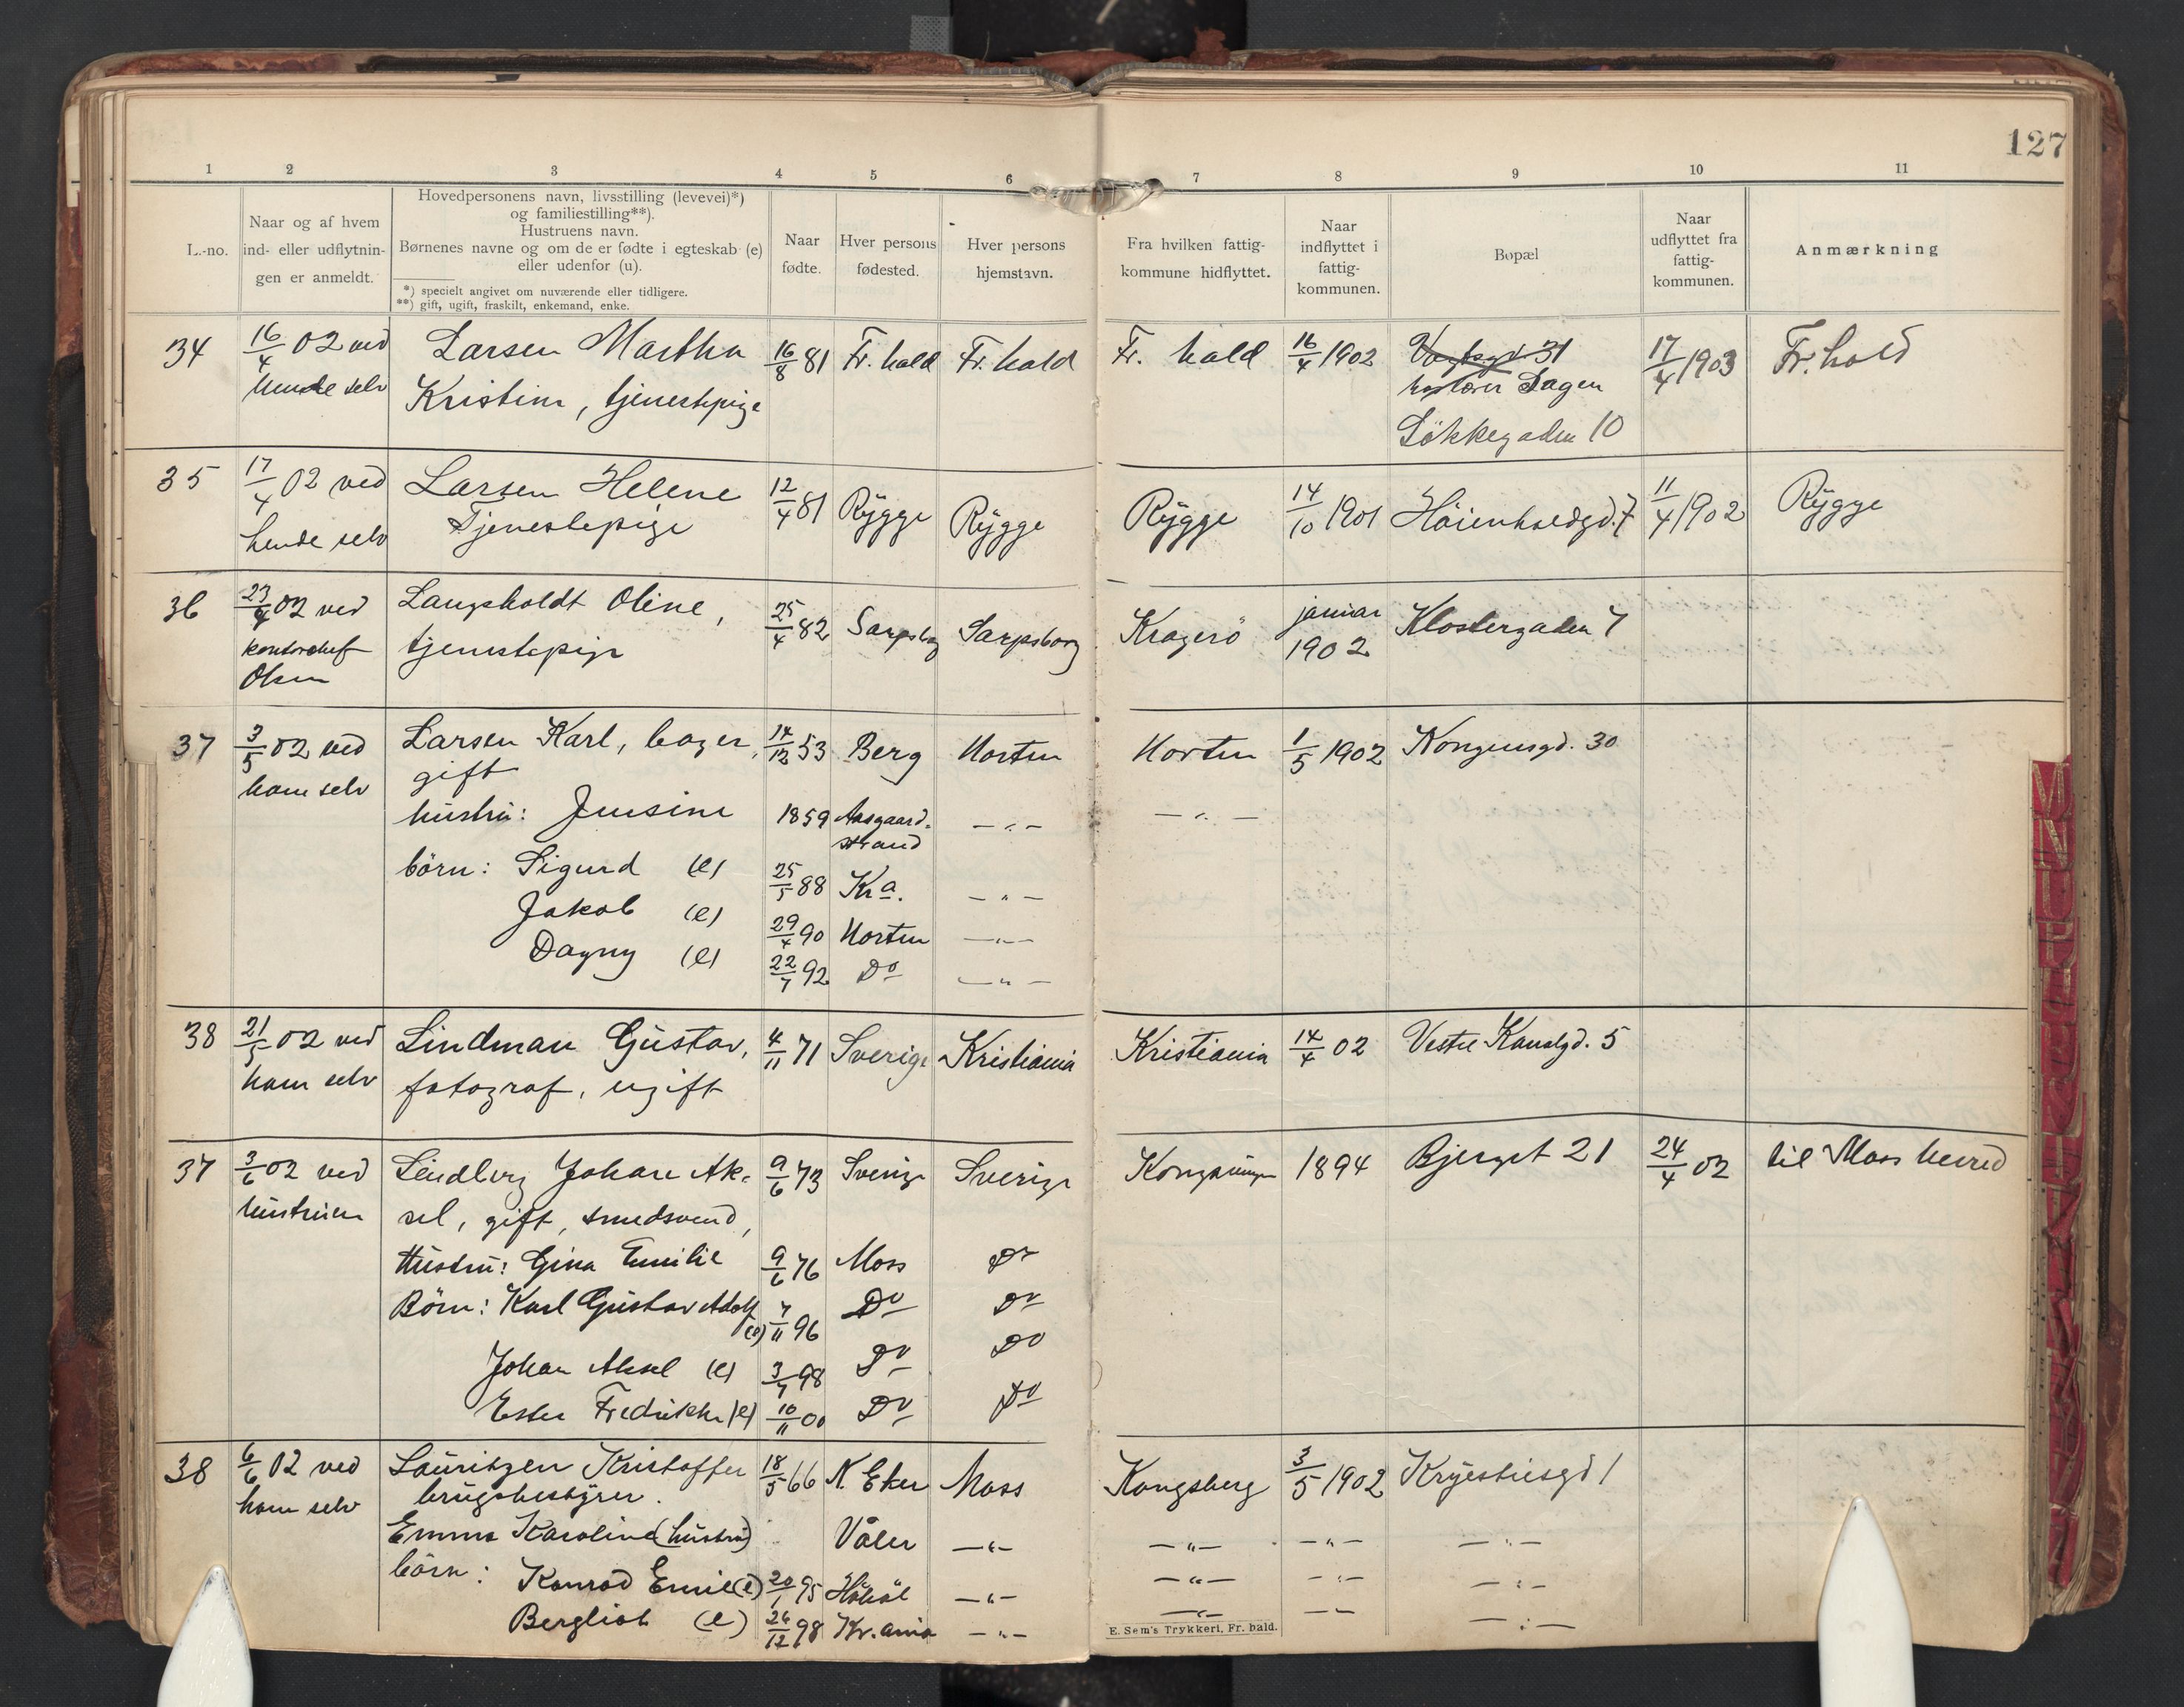 127
1 2 3 4 5 6 7 8 9 10 11
L.-no.
Naar og af hvem
ind- eller udflytnin-
gen er anmeldt.
Hovedpersonens navn, livsstilling (levevei)*)
og familiestilling**).
Hustruens navn.
Børnenes navne og om de er fødte i egteskab (e)
eller udenfor (u).
*) specielt angivet om nuværende eller tidligere.
**) gift, ugift, fraskilt, enkemand, enke.
Naar
fødte.
Hver persons
fødested.
Hver persons
hjemstavn.
Fra hvilken fattig-
kommune hidflyttet.
Naar
indflyttet i
fattig-
kommunen.
Bopæl
Naar
udflyttet fra
fattig-
kommunen.
Anmærkning
34 16/4 02 ved Larsen Martha 16/8 81 Fr. hald Fr. hald Fr. hald 16/4 1902 31 17/4 1903 Fr. hald
hende selv Kristine, tjenestepige Dagen
Løkkegaden 10
35 17/4 02 ved Larsen Helene 12/4 81 Rygge Rygge Rygge 14/10 1901 Høienholdgd. 7 11/4 1902 Rygge
hende selv Tjenestepige
36 23/4 02 ved Langsholdt Oline, 25/4 82 Sarpsborg Sarpsborg Kragerö januar Klostergaden 7
kontorchef tjenestepige 1902
Olsen
37 3/5 02 ved Larsen Karl, bager, 14/12 53 Berg Horten Horten 1/5 1902 Kongensgd. 30
ham selv gift
hustru: Jensine 1859 Aasgaard- — " — — " —
strand
börn: Sigurd (e) 25/5 88 Kr.a. — " —
Jakob (e) 29/4 90 Horten — " —
Dagny (e) 22/7 92 Do — " —
38 21/5 02 ved Lindman Gustav, 4/11 71 Sverige Kristiania Kristiania 14/4 02 Vestre Kanalgd. 5
ham selv fotograf, ugift
37 3/6 02 ved Lindberg Johan Ak- 9/6 73 Sverige Sverige Kongsvinger 1894 Bjerget 21 24/4 02 til Moss herred
hustruen sel, gift, smedsvend,
Hustru: Gina Emilie 9/6 76 Moss Do
Börn: Karl Gustav Adolf (e) 7/11 96 Do Do
Johan Aksel (e) 3/7 98 Do Do
Ester Fredrikke (e) 10/11 00 Do Do
38 6/6 02 ved Lauritzen Kristoffer 18/5 66 N. Eker Moss Kongsberg 3/5 1902 1
ham selv brugsbestyrer.
Emma Karoline (hustru) Våler — " — — " — — " — — " —
börn: Konrad Emil (e) 20/1 95 Håbøl — " — — " — — " — — " —
Bergliot (e) 26/12 98 Kr.ania — " — — " — — " — — " —
E. Sem's Trykkeri, Fr. hald.